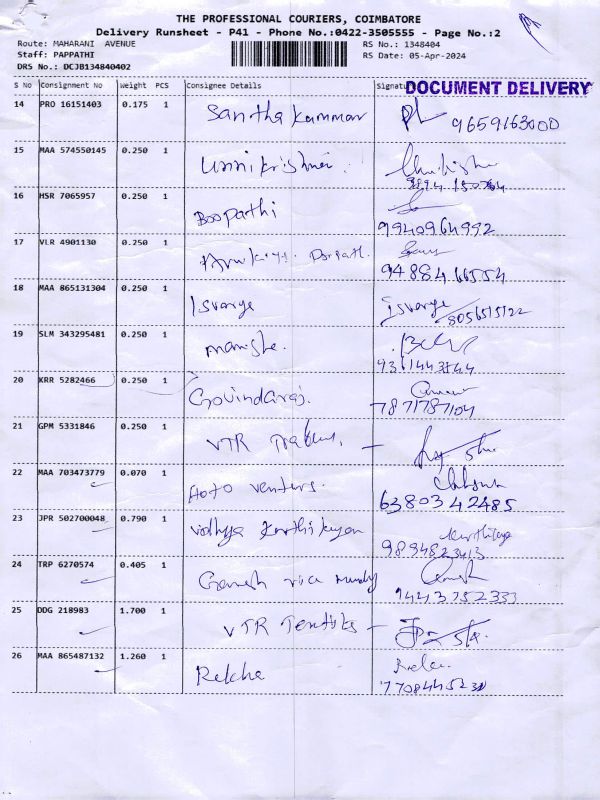 THE PROFESSIONAL COURIERS, COIMBATORE
Delivery Runsheet - P41 - Phone No.:0422-3505555 - Page No.:2
Route: MAHARANI AVENUE RS No.: 1348404
Staff: PAPPATHI RS Date: 05-Apr-2024
DRS No.: DCJB134840402
S No Consignment No Weight PCS Consignee Details Signatu DOCUMENT DELIVERY
14 PRO 16151403 0.175 1 Santha kumar 9659163000
15 MAA 574550145 0.250 1 Unni krishnan.
16 HSR 7065957 0.250 1 Boopathi
9940964992
17 VLR 4901130 0.250 1
9488466554
18 MAA 865131304 0.250 1 Isvarya Isvarya
8056515122
19 SLM 343295481 0.250 1
20 KRR 5282466 0.250 1 Govindaraj.
7871787104
21 GPM 5331846 0.250 1 VTR
22 MAA 703473779 0.070 1 Auto venturs.
6380342485
23 JPR 502700048 0.790 1 Vidhya Karthikeyan
9894823413
24 TRP 6270574 0.405 1 Ganesh rice mundy Ganesh
9443752333
25 DDG 218983 1.700 1 VTR
26 MAA 865487132 1.260 1 Rekha